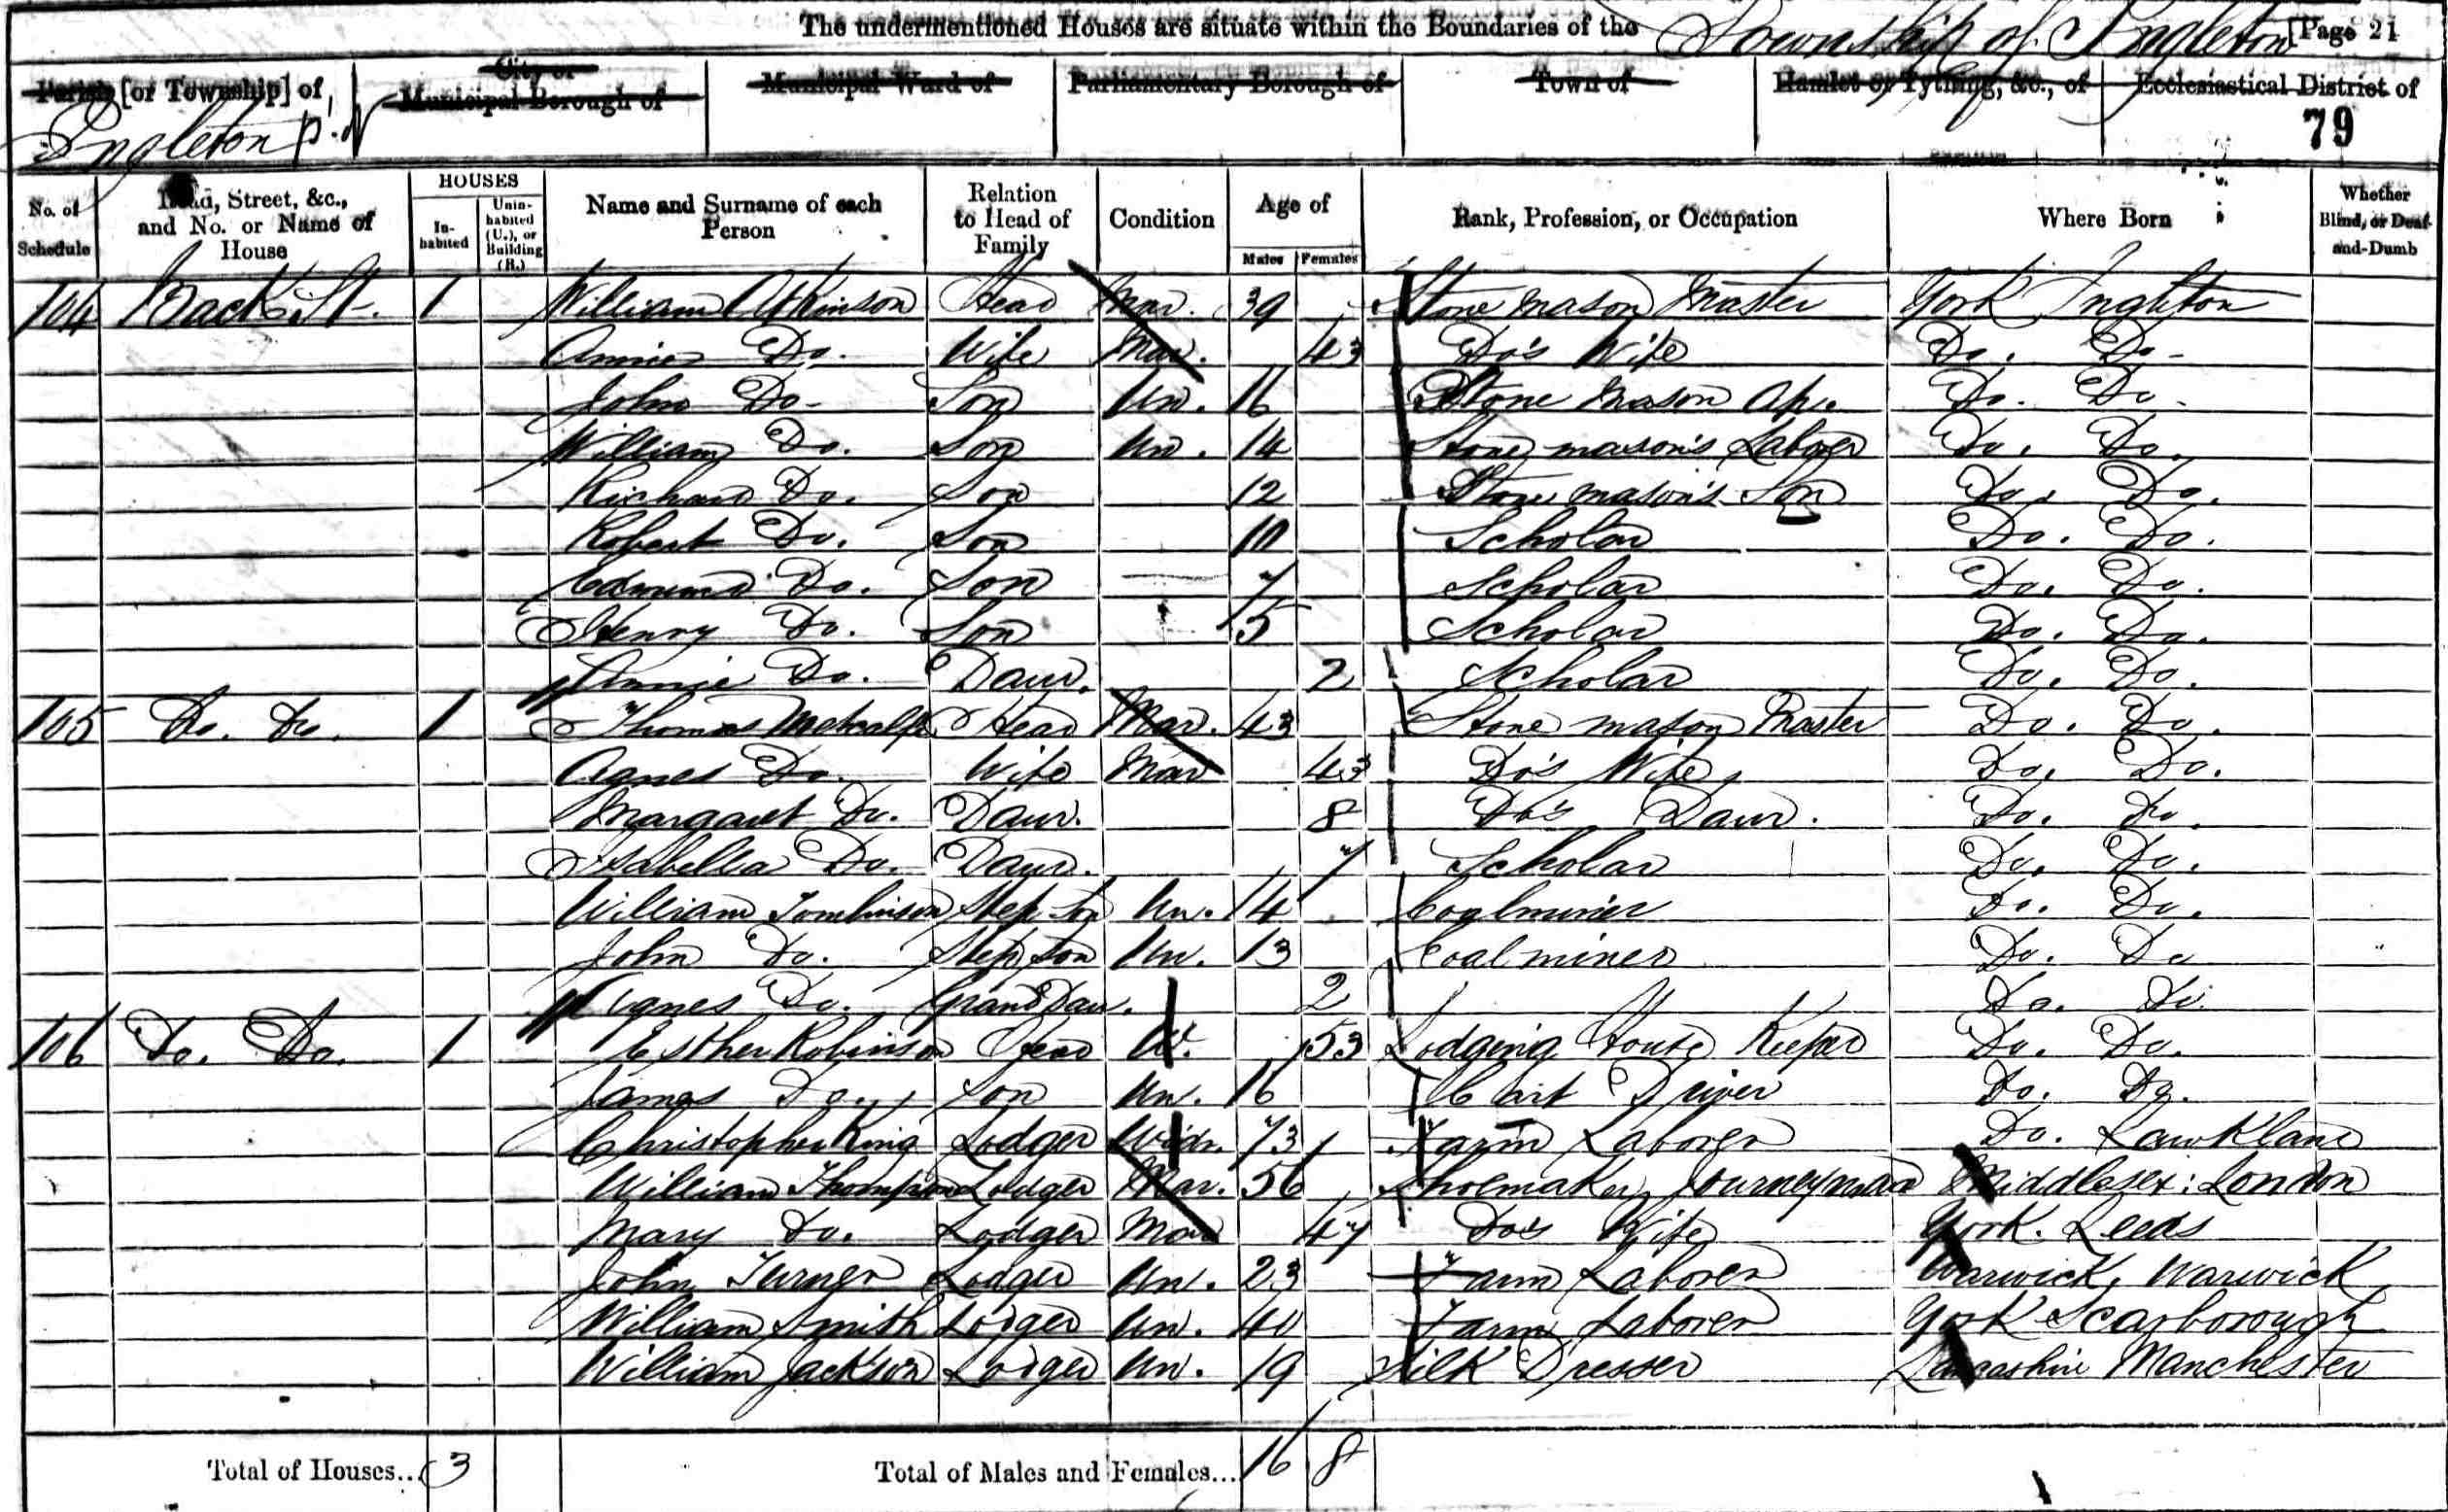 The undermentioned Houses are situate within the Boundaries of the Township of Ingleton [Page 21
Parish [or Township] of City or Municipal Borough of Municipal Ward of Parliamentary Borough of Town of Hamlet or Tything, &c., of Ecclesiastical District of
Ingleton 79
No. of Schedule Road, Street, &c., and No. or Name of House HOUSES Inhabited Uninhabited (U.), or Building (B.) Name and Surname of each Person Relation to Head of Family Condition Age of Males Females Rank, Profession, or Occupation Where Born Whether Blind, or Deaf-and-Dumb
104 Back St. 1 William Atkinson Head Mar. 39 Stone Mason Master York Ingleton
Annie Do. Wife Mar. 43 Do's Wife Do. Do.
John Do. Son Un. 16 Stone Mason Ap. Do. Do.
William Do. Son Un. 14 Stone mason's Laborer Do. Do.
Richard Do. Son 12 Stone mason's Son Do. Do.
Robert Do. Son 10 Scholar Do. Do.
Edmund Do. Son 7 Scholar Do. Do.
Henry Do. Son 5 Scholar Do. Do.
Annie Do. Daur. 2 Scholar Do. Do.
105 Do. Do. 1 Thomas Metcalfe Head Mar. 43 Stone mason Master Do. Do.
Agnes Do. Wife Mar 43 Do's Wife Do. Do.
Margaret Do. Daur. 8 Do's Daur. Do. Do.
Isabella Do. Daur. 7 Scholar Do. Do.
William Tomlinson Step Son Un. 14 Coalminer Do. Do.
John Do. Step Son Un. 13 Coalminer Do. Do
Agnes Do. Grand Daur. 2 Do. Do.
106 Do. Do. 1 Esther Robinson Head W. 53 Lodging House Keeper Do. Do.
James Do. Son Un. 16 Cart Driver Do. Do.
Christopher King Lodger Widr. 73 Farm Laborer Do. Lawkland
William Thompson Lodger Mar. 56 Shoemaker Journeyman Middlesex: London
Mary Do. Lodger Mar 47 Do's Wife York. Leeds
John Turner Lodger Un. 23 Farm Laborer Warwick, Warwick
William Smith Lodger Un. 40 Farm Laborer York Scarborough
William Jackson Lodger Un. 19 Silk Dresser Lancashire Manchester
Total of Houses... 3 Total of Males and Females... 16 8